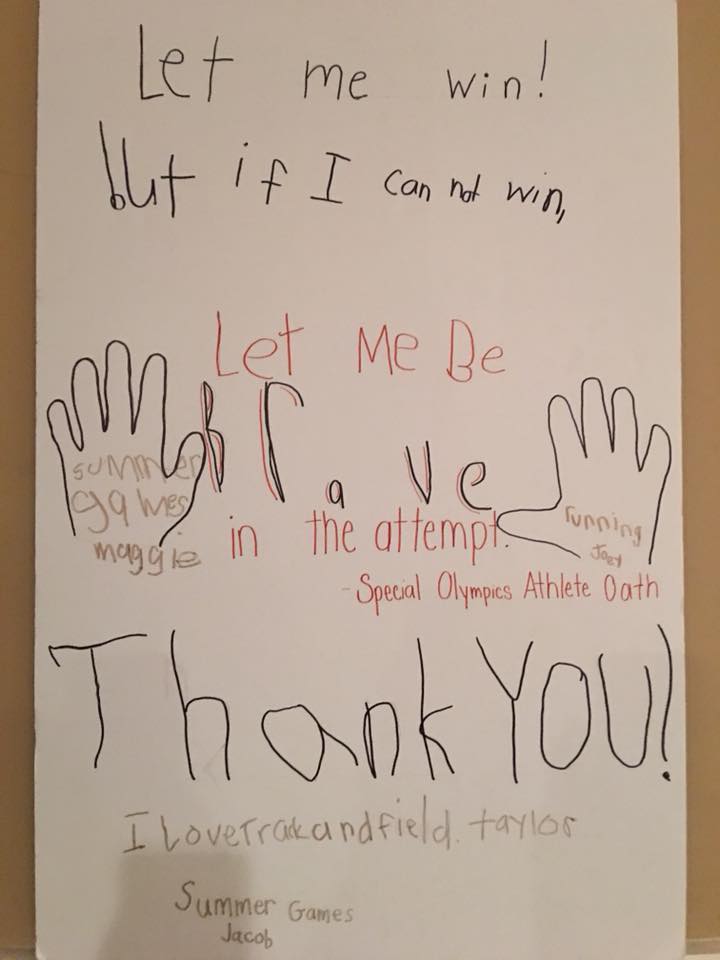 Let me win!
but if I can not win,
Let Me Be
brave
in the attempt.
-Special Olympics Athlete Oath
summer
games
maggie
running
Joey
Thank YOU!
I Love Track and field. taylor
Summer Games
Jacob